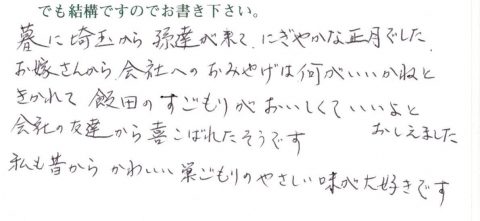 でも結構ですのでお書き下さい。
暮に埼玉から孫達が来て、にぎやかな正月でした
お嫁さんから会社へのおみやげは何がいいかねと
きかれて飯田のすごもりがおいしくていいよと
おしえました
会社の友達から喜こばれたそうです
私も昔からかわいい巣ごもりのやさしい味が大好きです